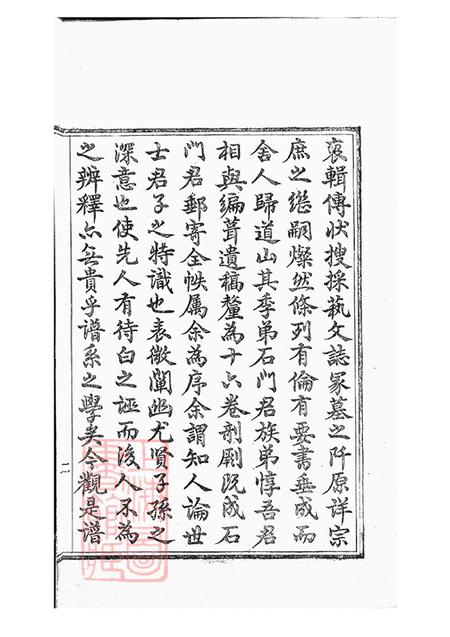 裒輯傳狀搜採藝文誌冢墓之阡原詳宗
庶之繼嗣燦然條列有倫有要書垂成而
舍人歸道山其季弟石門君族弟惇吾君
相與編葺遺稿釐為十六卷剞劂既成石
門君郵寄全帙属余為序余謂知人論世
士君子之特識也表微闡幽尤賢子孫之
深意也使先人有待白之誣而後人不為
之辨釋亦無貴乎谱系之學矣今觀是谱
二